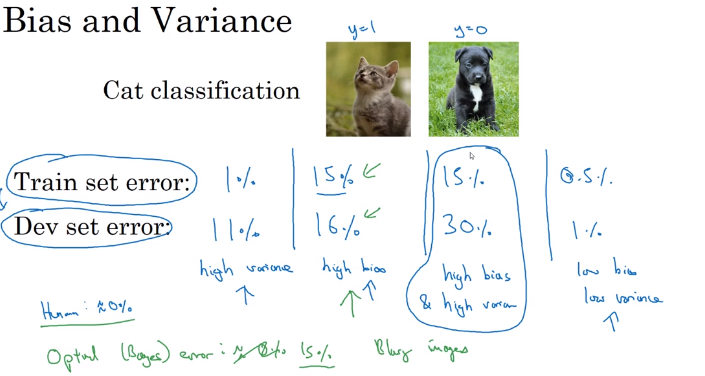 Bias and Variance
y=1 y=0
Cat classification
Train set error: 1% 15% 15% 0.5%
Dev set error: 11% 16% 30% 1%
high variance high bias high bias low bias
& high varian low variance
Human: ≈0%
Optal (Bayes) error: ≈ 0% 15% Blury images